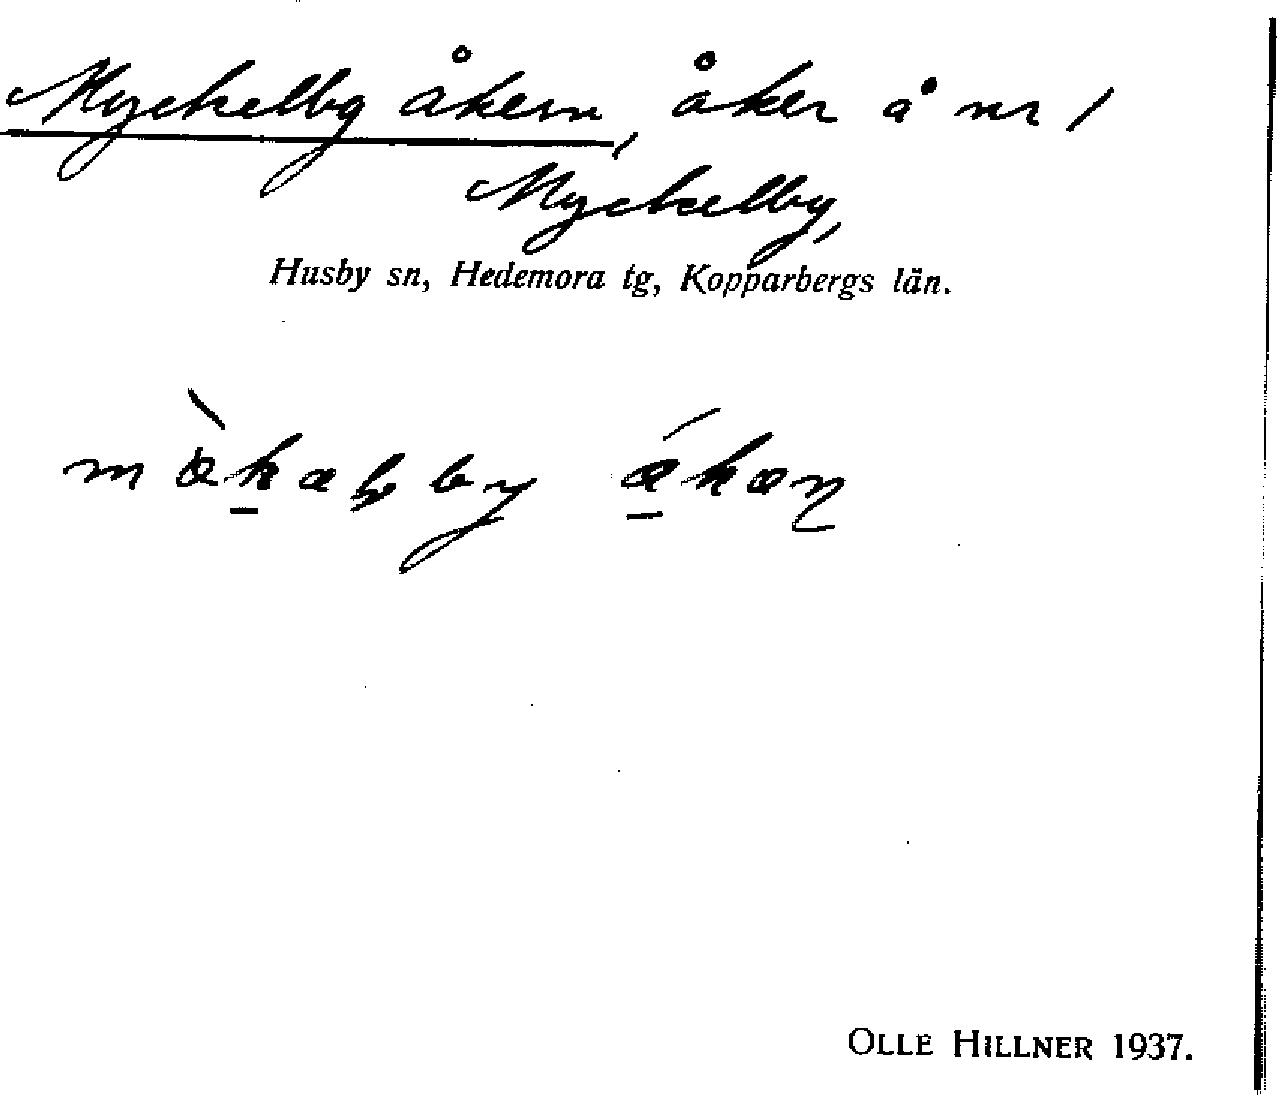 Myckelby åkern, åker å nr 1
Myckelby,
Husby sn, Hedemora tg, Kopparbergs län.
OLLE HILLNER 1937.